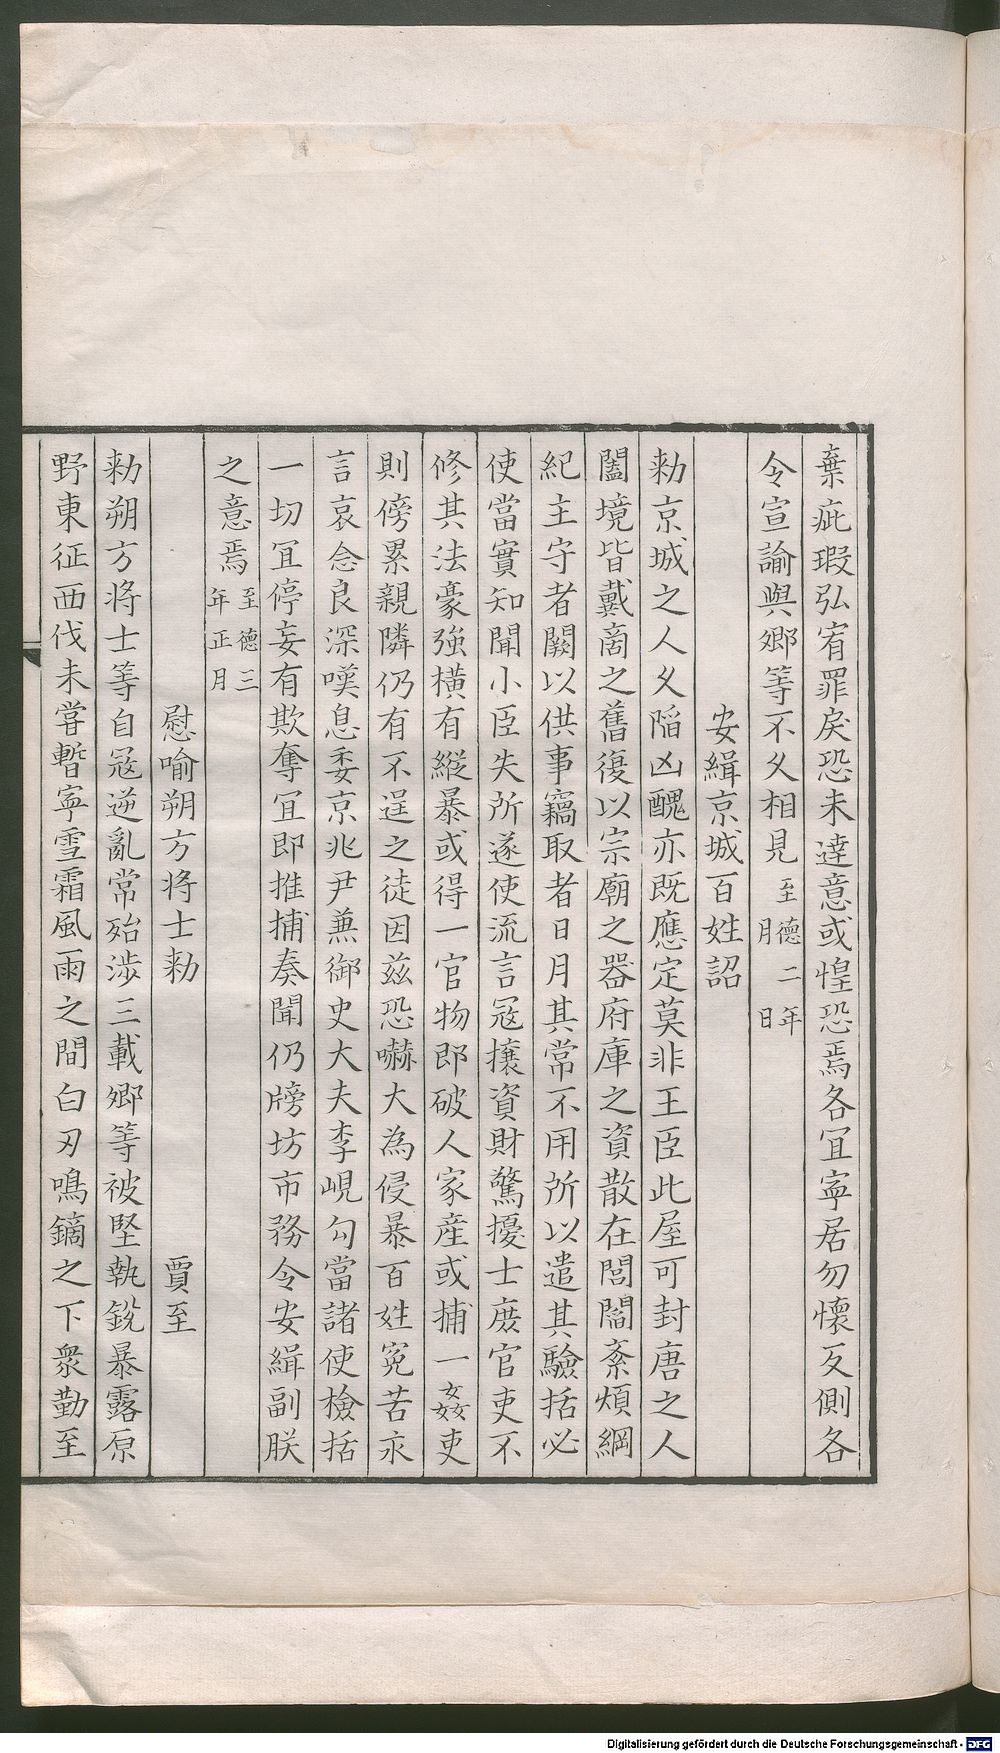 棄疵瑕弘宥罪戾恐未達意或惶恐焉各宜寧居勿懷反側各
令宣諭與鄉等不久相見至德二年月日
安緝京城百姓詔
勑京城之人久陷凶醜亦既應定莫非王臣比屋可封唐之人
闔境皆戴商之舊復以宗廟之器府庫之資散在閭閻紊煩綱
紀主守者闕以供事竊取者日月其常不用所以遣其驗括必
使當實知聞小臣失所遂使流言冦攘資財驚擾士庻官吏不
修其法豪強橫有縱暴或得一官物即破人家産或捕一姦吏
則傍累親隣仍有不逞之徒因兹恐嚇大為侵暴百姓冤苦永
言哀念良深嘆息委京兆尹兼御史大夫李峴勾當諸使檢括
一切宜停妄有欺奪宜即推捕奏聞仍牓坊市務令安緝副朕
之意焉至德三年正月
慰喻朔方将士勑 賈至
勑朔方将士等自冦逆亂常殆渉三載鄉等被堅執銳暴露原
野東征西伐未甞暫寧雪霜風雨之間白刃鳴鏑之下衆勤至
Digitalisierung gefördert durch die Deutsche Forschungsgemeinschaft - DFG